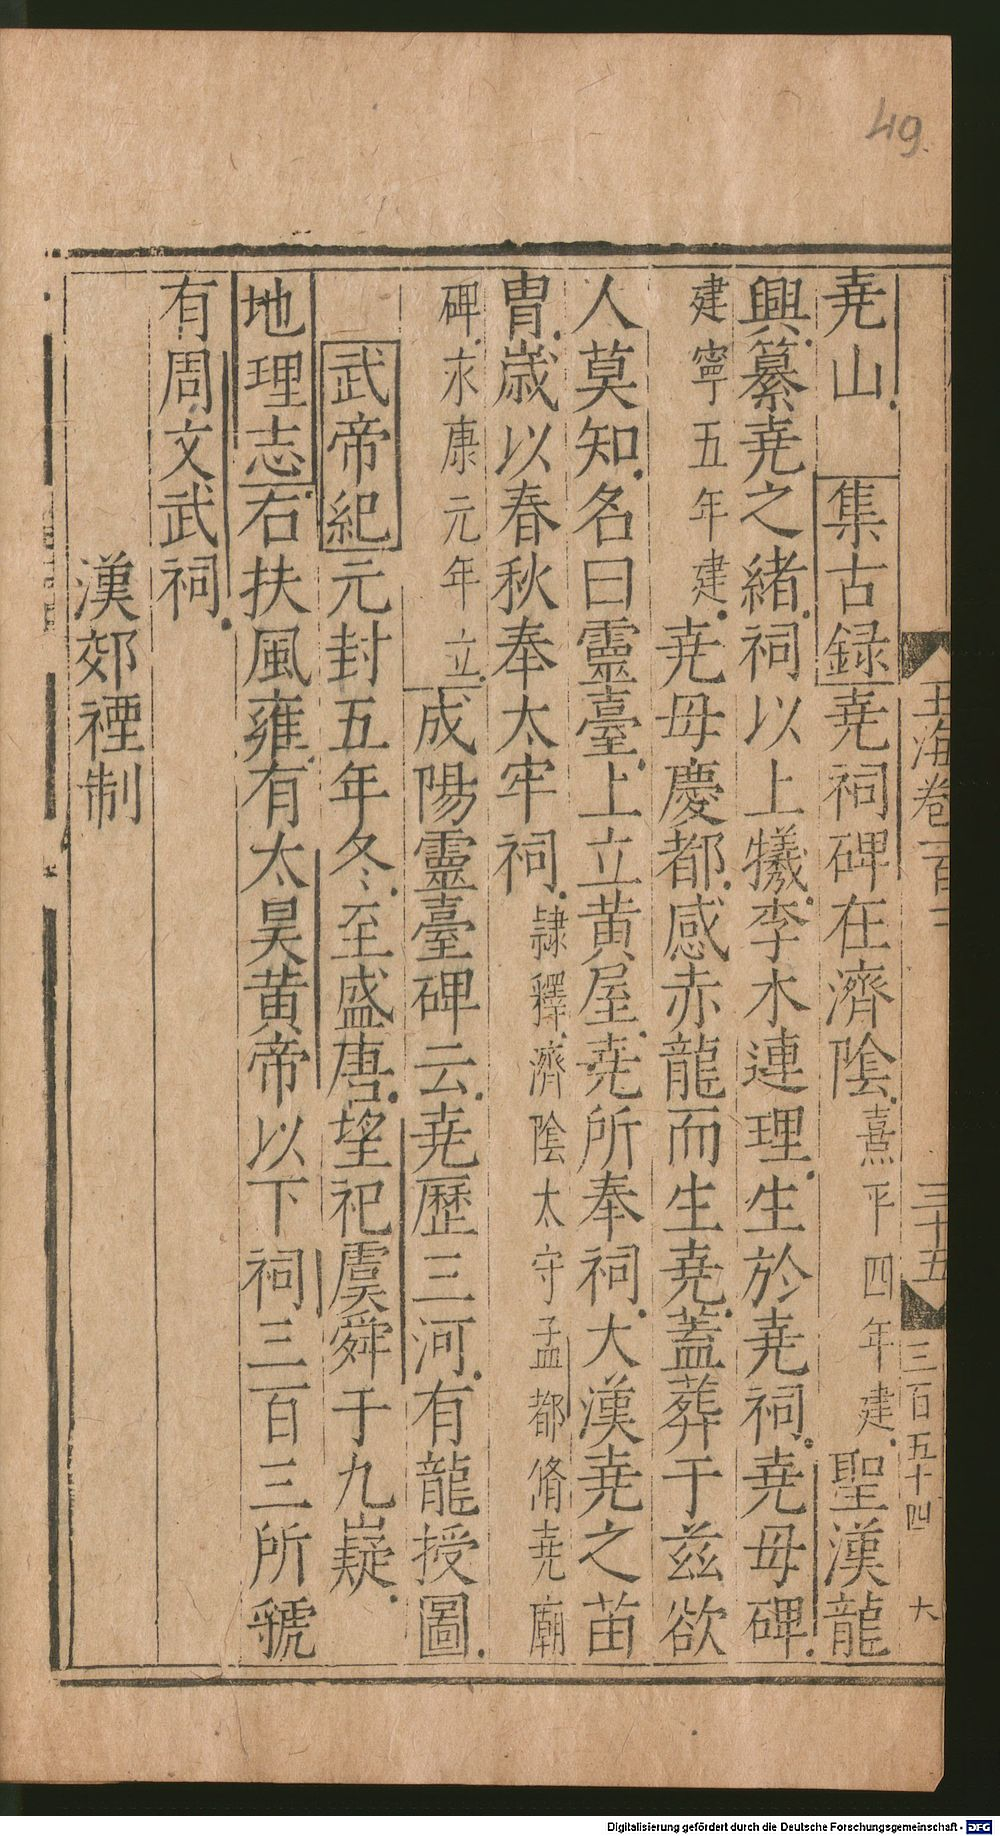 49.
玉海卷一百 三十五 三百五十四 大
堯山 集古録堯祠碑在濟陰熹平四年建聖漢龍
興纂堯之緒祠以上犧李木連理生於堯祠堯母碑
建寧五年建堯母慶都感赤龍而生堯蓋葬于兹欲
人莫知名曰靈臺上立黄屋堯所奉祠大漢堯之苗
胄歳以春秋奉太牢祠隷釋濟陰太守孟郁脩堯廟
碑永康元年立成陽靈臺碑云堯歷三河有龍授圖
武帝紀元封五年冬至盛唐望祀虞舜于九嶷
地理志右扶風雍有太昊黄帝以下祠三百三所虢
有周文武祠
漢郊禋制
Digitalisierung gefördert durch die Deutsche Forschungsgemeinschaft - DFG